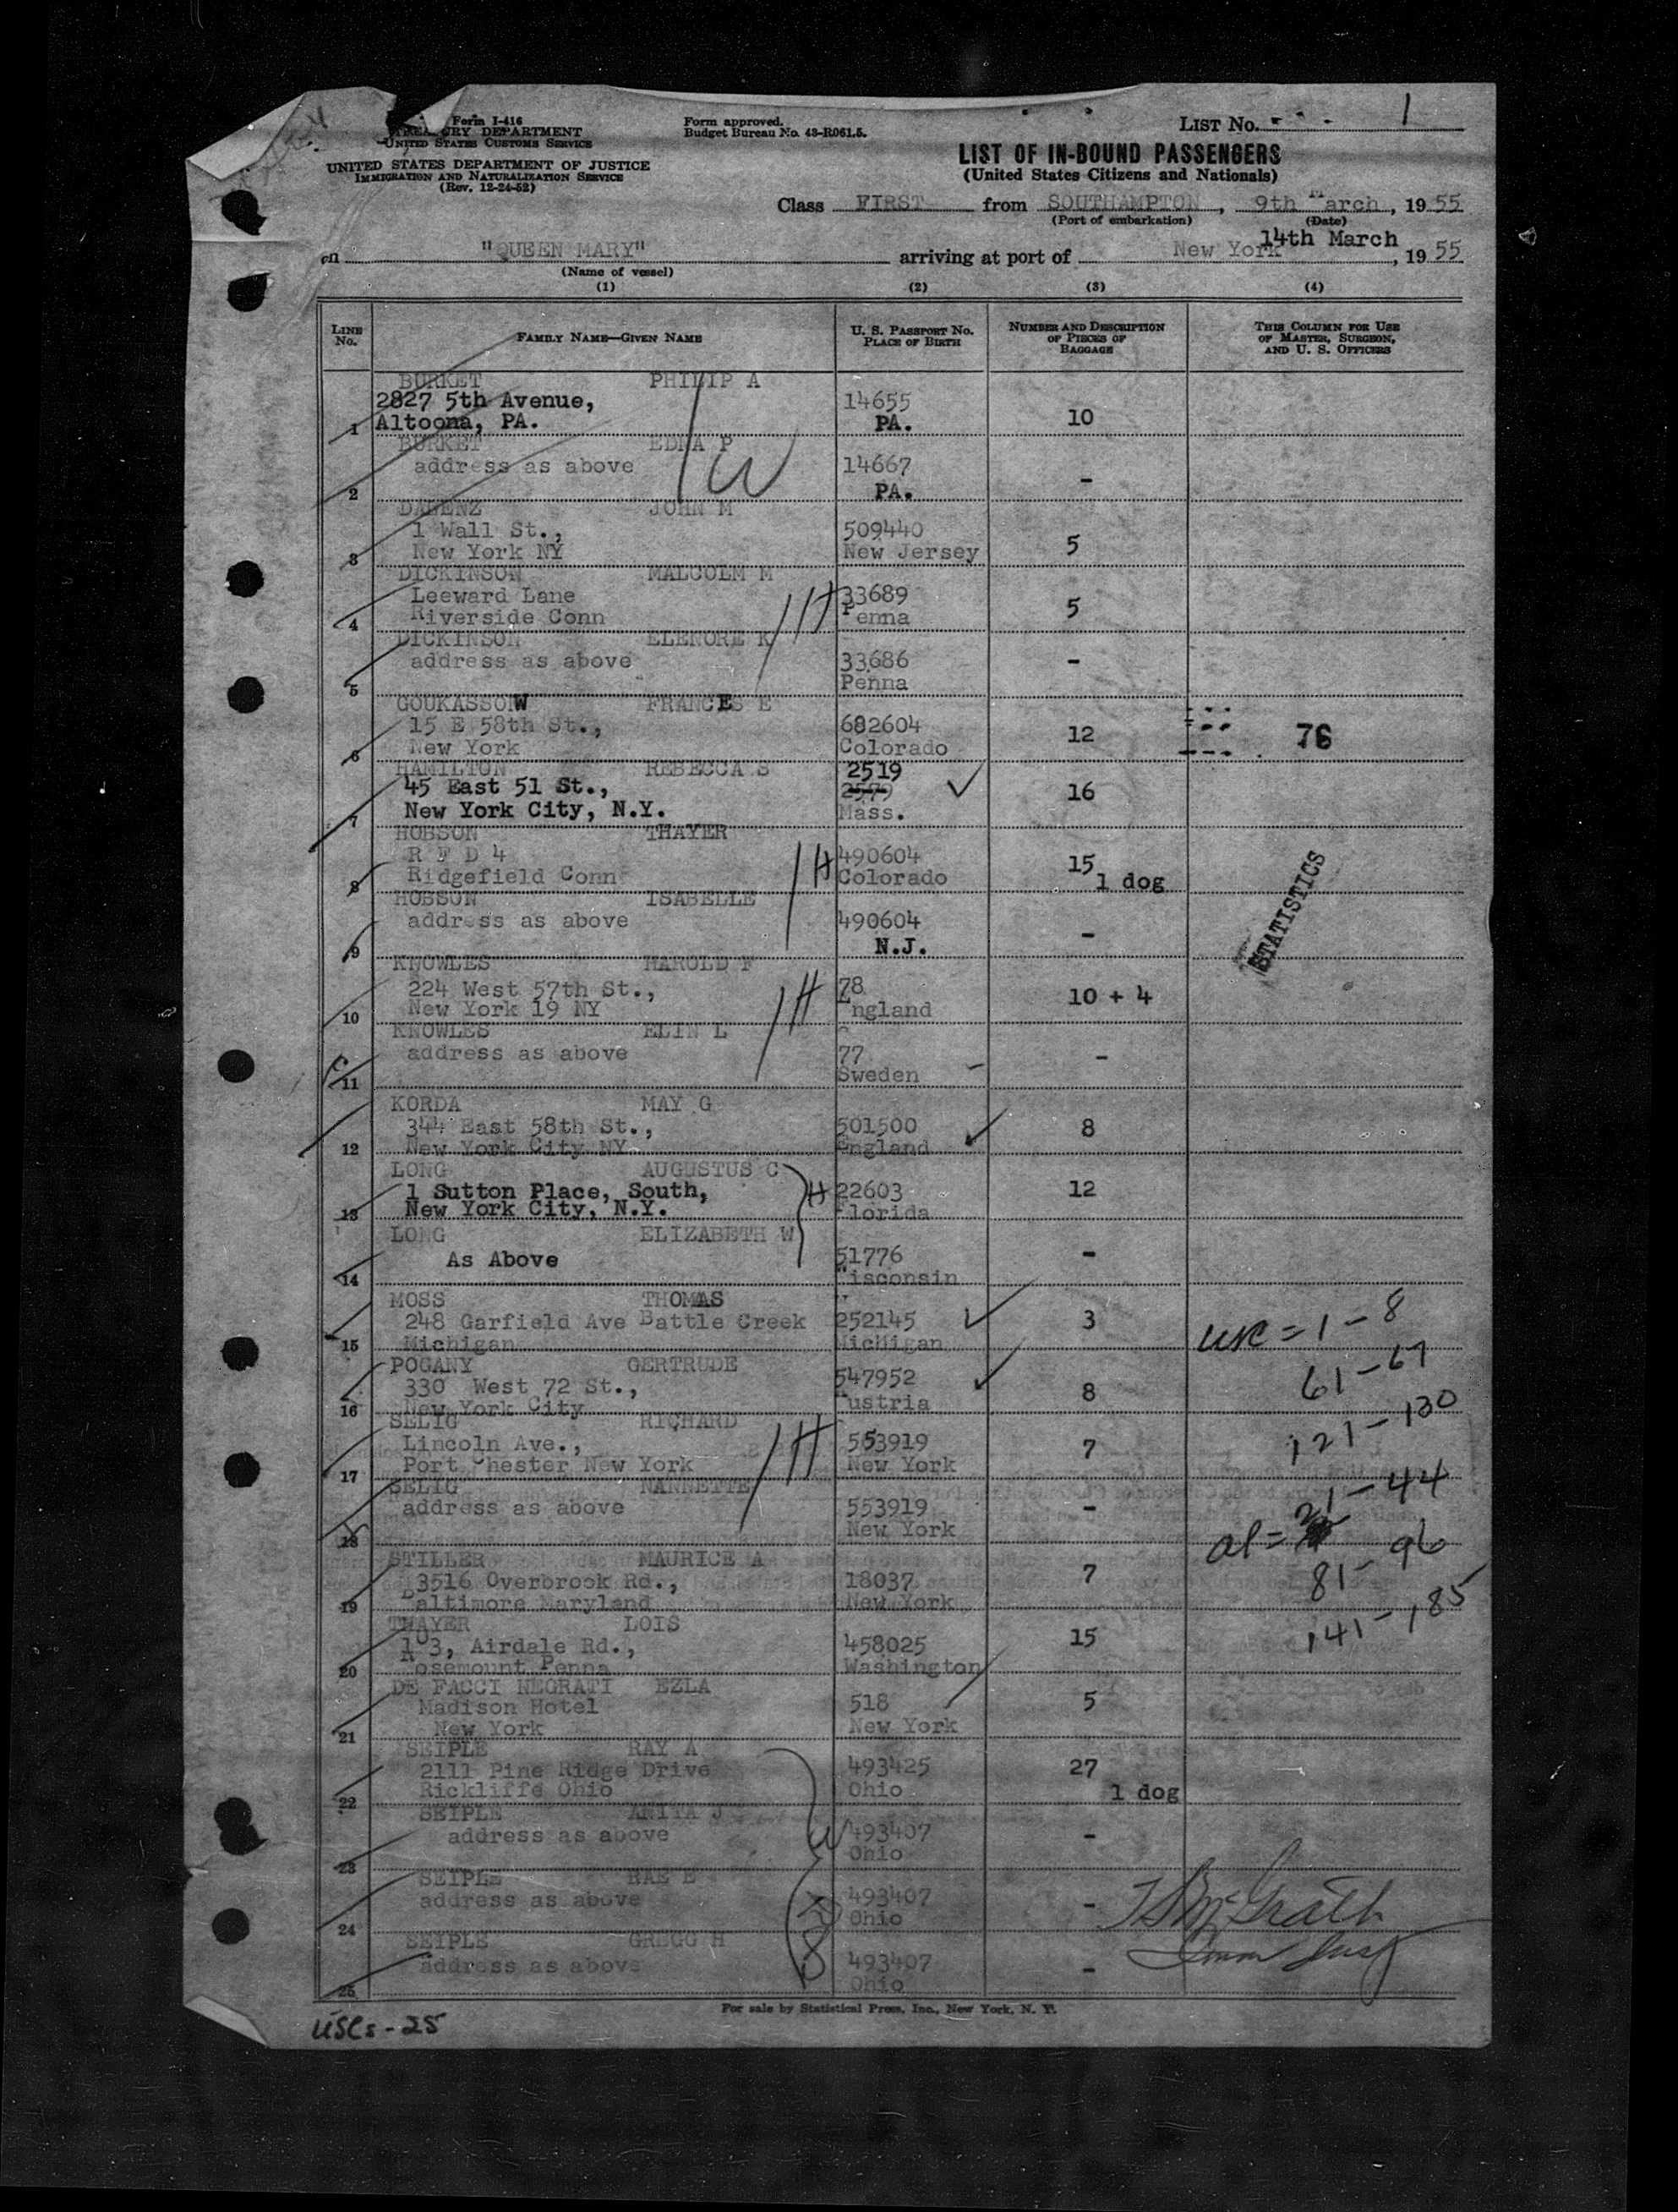 Form I-416
TREASURY DEPARTMENT
UNITED STATES CUSTOMS SERVICE
UNITED STATES DEPARTMENT OF JUSTICE
IMMIGRATION AND NATURALIZATION SERVICE
(Rev. 12-24-52)
Form approved.
Budget Bureau No. 43-R061.5.
LIST No. 1
LIST OF IN-BOUND PASSENGERS
(United States Citizens and Nationals)
Class FIRST from SOUTHAMPTON, 9th March, 1955
(Port of embarkation) (Date)
on "QUEEN MARY" arriving at port of New York 14th March, 1955
(Name of vessel)
(1) (2) (3) (4)
LINE No. FAMILY NAME—GIVEN NAME U. S. PASSPORT No. PLACE OF BIRTH NUMBER AND DESCRIPTION OF PIECES OF BAGGAGE THIS COLUMN FOR USE OF MASTER, SURGEON, AND U. S. OFFICERS
BURKET PHILIP A
2827 5th Avenue, 14655
1 Altoona, PA. PA. 10
BURKET EDNA P
address as above 14667
2 PA. -
W
JOHN M
1 Wall St., 509440
3 New York NY New Jersey 5
DICKINSON MALCOLM M
Leeward Lane 33689
4 Riverside Conn Penna 5
H
DICKINSON ELENORE K
address as above 33686
5 Penna -
GOUKASSOW FRANCES E
15 E 58th St., 682604
6 New York Colorado 12 76
HAMILTON REBECCA S 2519
45 East 51 St., 2579
7 New York City, N.Y. Mass. 16
HOBSON THAYER
R F D 4 490604
8 Ridgefield Conn Colorado 15 1 dog
H
HOBSON ISABELLE
address as above 490604
9 N.J. -
STATISTICS
KNOWLES HAROLD F
224 West 57th St., 78
10 New York 19 NY England 10 + 4
H
KNOWLES ELIN L
address as above 77
11 Sweden -
KORDA MAY G
344 East 58th St., 501500
12 New York City NY England 8
LONG AUGUSTUS C
1 Sutton Place, South, 22603
13 New York City, N.Y. Florida 12
H
LONG ELIZABETH W
As Above 51776
14 Wisconsin -
MOSS THOMAS
248 Garfield Ave Battle Creek 252145
15 Michigan Michigan 3
usc = 1 - 8
POGANY GERTRUDE
330 West 72 St., 547952
16 New York City Austria 8
61 - 67
SELIG RICHARD
Lincoln Ave., 553919
17 Port Chester New York New York 7
H
121 - 130
SELIG NANNETTE
address as above 553919
18 New York -
al = 21 - 44
STILLER MAURICE A
3516 Overbrook Rd., 18037
19 Baltimore Maryland New York 7
81 - 96
THAYER LOIS
103, Airdale Rd., 458025
20 Rosemount Penna Washington 15
141 - 185
DE FACCI NEGRATI EZLA
Madison Hotel 518
21 New York New York 5
SEIPLE RAY A
2111 Pine Ridge Drive 493425
22 Rickliffe Ohio Ohio 27 1 dog
SEIPLE ANITA J
address as above 493407
23 Ohio -
W
SEIPLE RAE E
address as above 493407
24 Ohio -
SEIPLE GREGG H
address as above 493407
25 Ohio -
8
McGrath
Imm Insp
For sale by Statistical Press, Inc., New York, N. Y.
USCs - 25